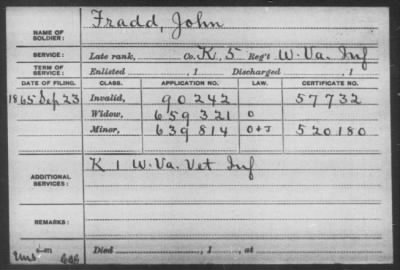 NAME OF SOLDIER: Fradd, John
SERVICE: Late rank, Co. K, 5 Reg't W. Va. Inf
TERM OF SERVICE: Enlisted , 1 Discharged , 1
DATE OF FILING. CLASS. APPLICATION NO. LAW. CERTIFICATE NO.
1865 Sep 23 Invalid, 90242 57732
Widow, 659321 O
Minor, 639814 O+J 520180
ADDITIONAL SERVICES: K 1 W. Va. Vet Inf
REMARKS:
Died , 1 , at